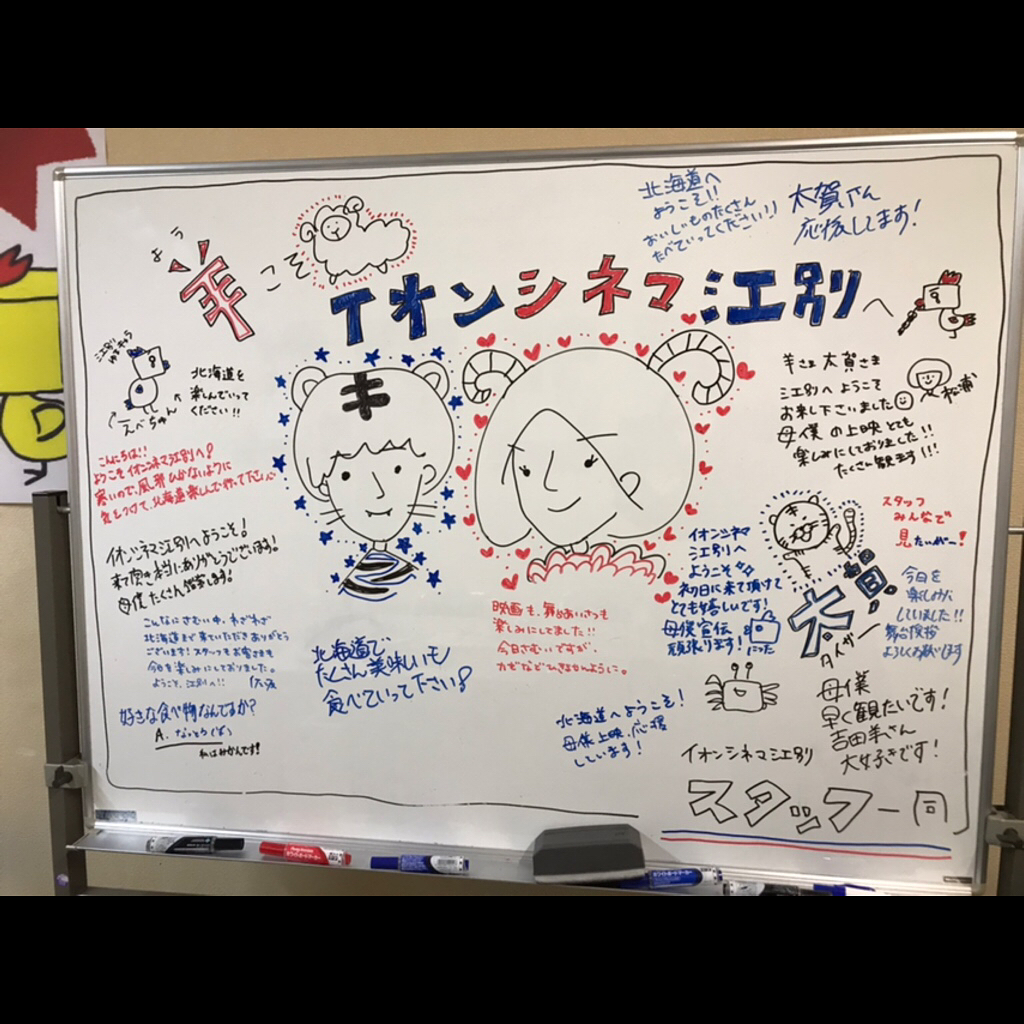 よう
羊
こそ
イオンシネマ江別へ
北海道へ
ようこそ!!
おいしいものたくさん
たべていってください!!
太賀さん
応援してます!
江別
ゆるキャラ
えべちゅん
北海道を
楽しんでいって
ください!!
こんにちは!!
ようこそイオンシネマ江別へ!
寒いので、風邪ひかないように
気をつけて、北海道楽しんで行って下さい
イオンシネマ江別へようこそ!
来て頂き本当にありがとうございます!
母僕たくさん観ます!
こんなにさむい中、わざわざ
北海道まで来ていただきありがとう
ございます!スタッフもお客さまも
今日を楽しみにしておりました。
ようこそ、江別へ!!
好きな食べ物なんですか?
A.
私はみかんです!
キ
北海道で
たくさん美味しいもの
食べていって下さい!
映画も、舞台あいさつも
楽しみにしてました!!
今日さむいですが、
カゼなどひきませんように。
羊さま 太賀さま
江別へようこそ
お来し下さいました
母僕の上映とても
楽しみにしておりました!!
たくさん観ます!!!
松浦
イオンシネマ
江別へ
ようこそ
初日に来て頂けて
とても嬉しいです!
母僕宣伝
頑張ります!
にっこ
キ
太賀
タイガー
スタッフ
みんなで
見たいがー!
今日を
楽しみに
していました!!
舞台挨拶
よろしくお願いします
北海道へようこそ!
母僕上映、応援
しています!
母僕
早く観たいです!
吉田羊さん
大好きです!
イオンシネマ江別
スタッフ一同